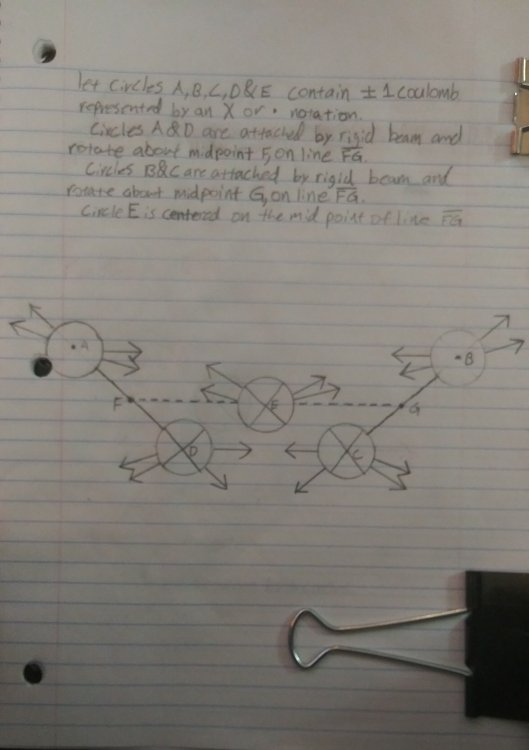 let circles A,B,C,D&E contain ± 1 coulomb
represented by an X or • notation.
Circles A&D are attached by rigid beam and
rotate about midpoint F, on line FG.
Circles B&C are attached by rigid beam and
rotate about midpoint G, on line FG.
Circle E is centered on the mid point of line FG
A
B
F
E
G
D
C